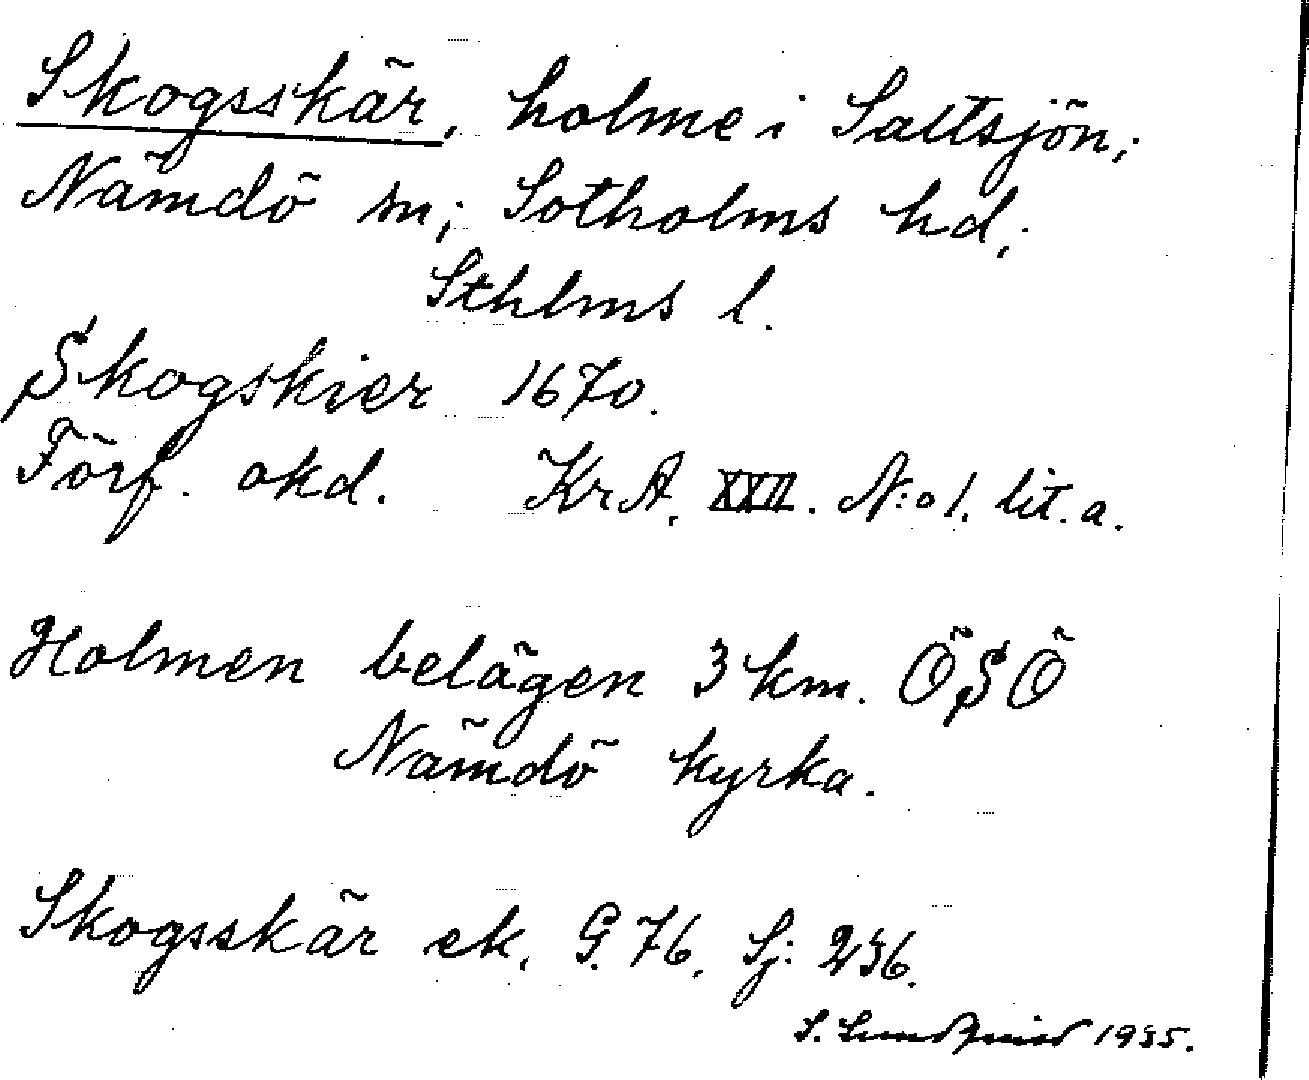 Skogsskär, holme i Saltsjön;
Nämdö sn; Sotholms hd;
Sthlms l.
Skogskier 1670.
Förf. okd. KrA. XXII. N:o 1. lit. a.
Holmen belägen 3 km. ÖSÖ
Nämdö kyrka.
Skogsskär ek. G. 76. Sj: 236.
S. Lundqvist 1935.